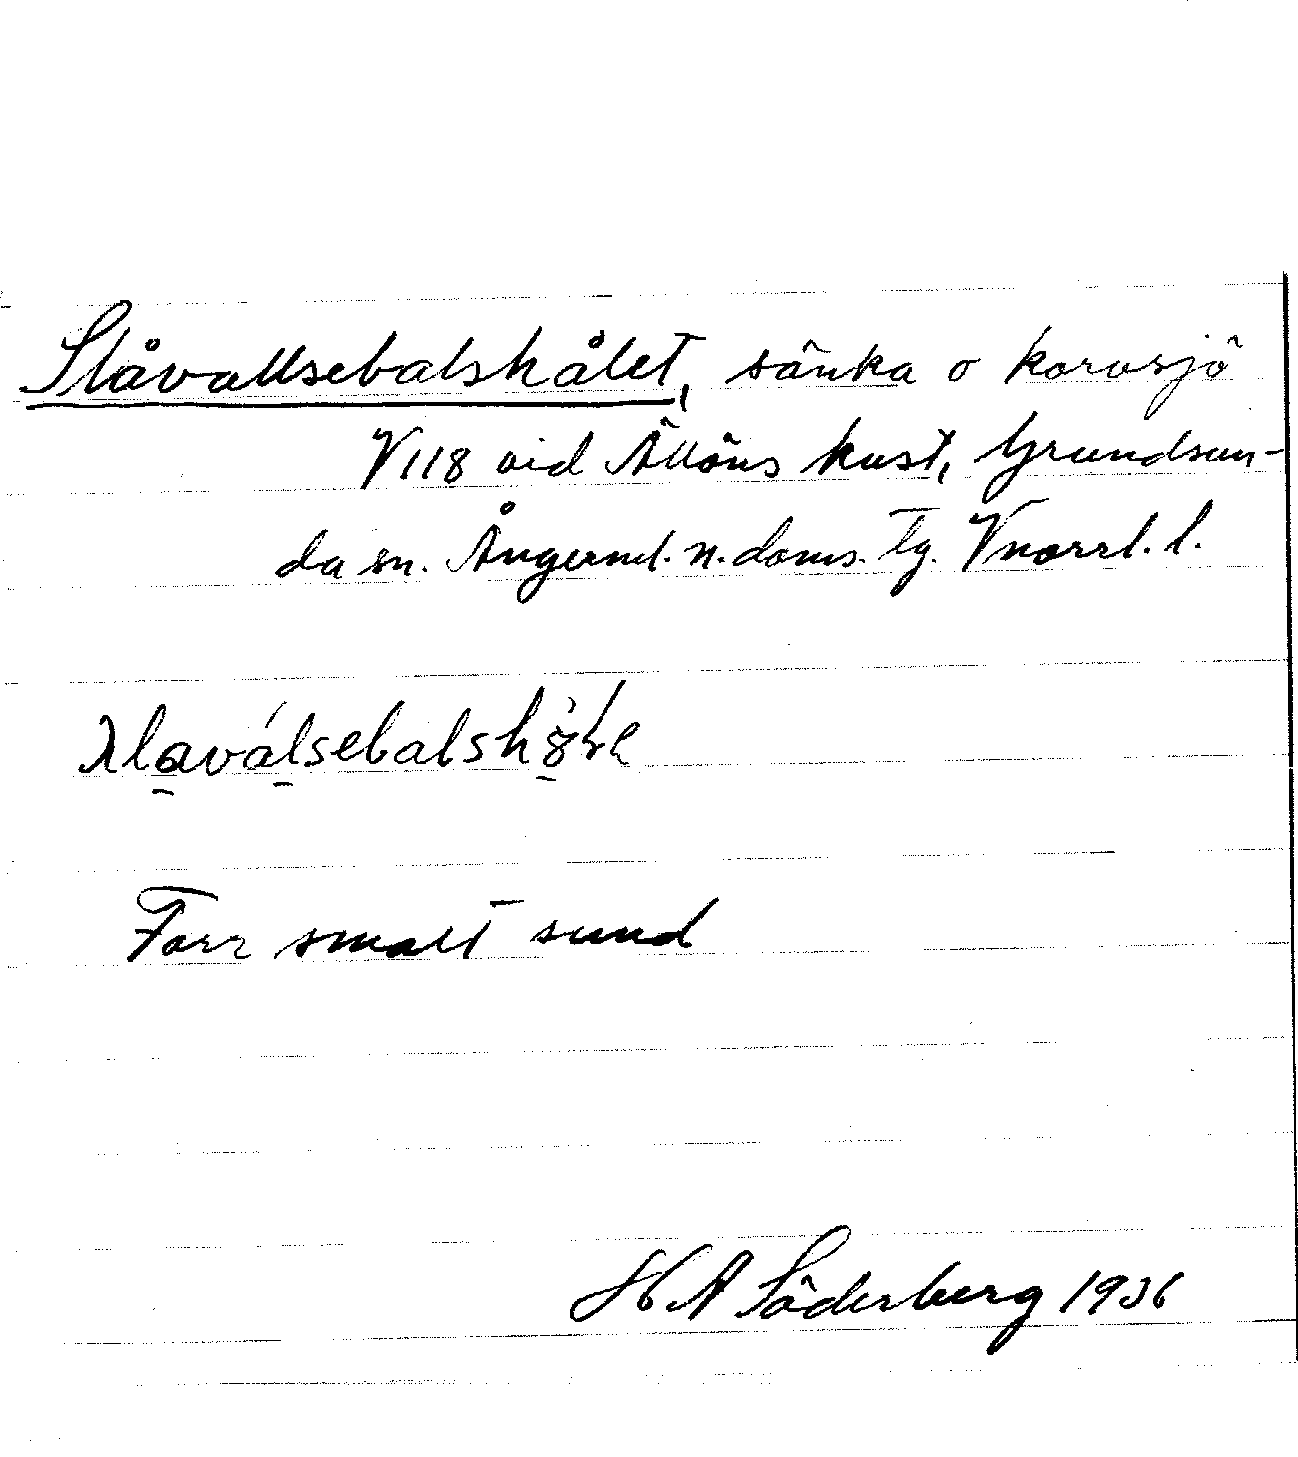 Slåvallsebalshålet, sänka o korvsjö
V118 vid Ällöns kust, Grundsun-
da sn. Ångerml. n. doms. Tg. Vnorrl. l.
Farr smalt sund
H A Söderberg 1936